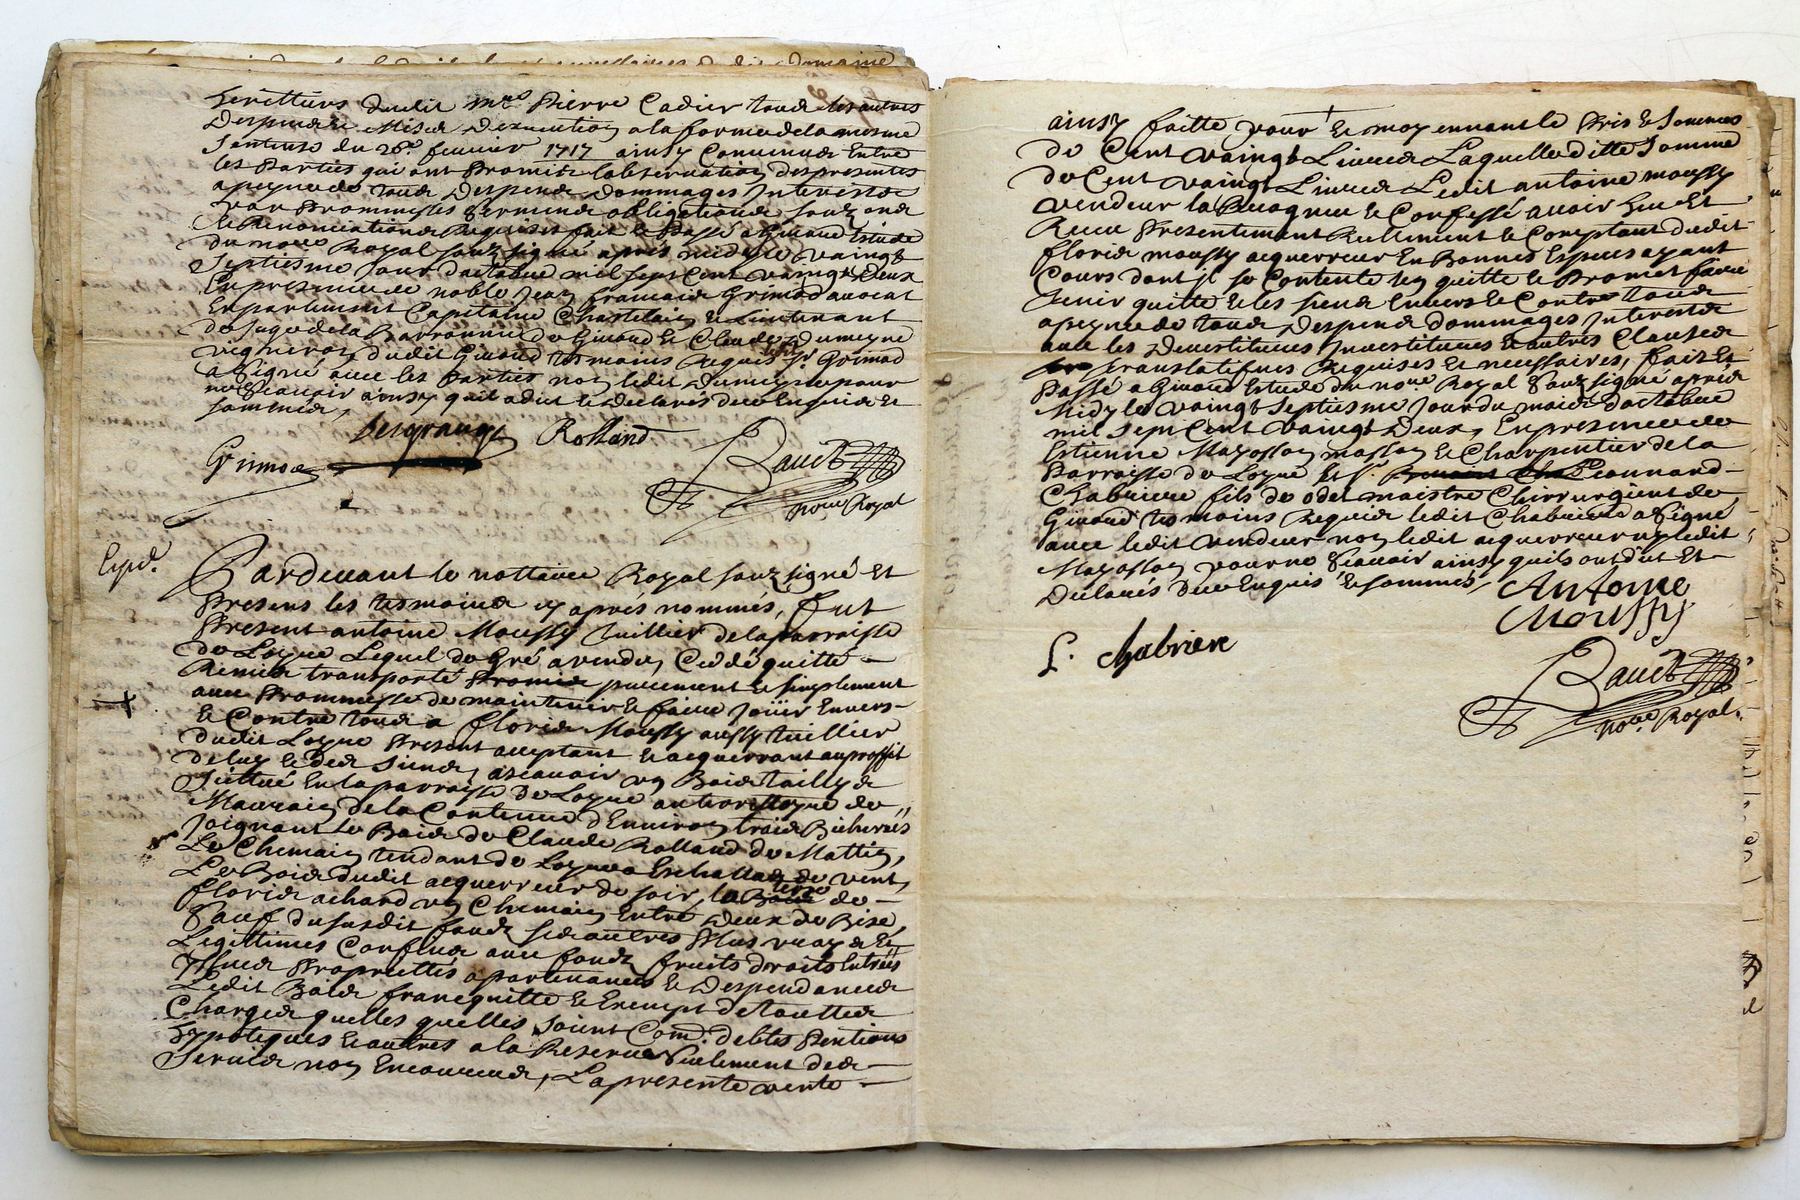 heritiers dudit mre Pierre Cadier tous les autres
Despens Mis a Execution a la forme de la mesme
Sentence du 26e feurier 1717 ainsy Conuenus Entre
les Parties qui ont Promis l'obseruation des presentes
a peyne de tous Despens Dommages Interests
par Promesses serments obligations
& Renonciations Requises fait & Passé a Giuord Estude
du nore Royal soubsigné aprés midy le vaingt
Septiesme Jour d'octobre mil sept Cent vaingt Deux
En presence de noble Jean francois Grimod auocat
En parlement Capitaine Chastelain & Lieutenant
de Juge de la Barronnie de Giuord & Claude Dumeyne
vigneron dudit Giuord tesmoins Requis ledit sr Grimod
a Signé auec les parties non ledit Dumeyne pour
ne Scauoir ainsy qu'il a dit & Declaré de ce Enquis Et
sommés,
Desgranges Rolland
Grimod
Baudt
nore Royal
Expd.
Pardeuant le nottaire Royal soubsigné Et
Presens les tesmoins cy aprés nommés, fut
Present antoine Moussy tuillier de la parroisse
de Loyre Lequel de Gré a vendu Cedé quitté
Remis transporté purement & simplement
auec Promesse de maintenir & faire Joüir Enuers
& Contre tous a floris Moussy aussy tuillier
dudit Loyre Present acceptant & acquerrant au proffit
de luy & des Siens, ascauoir un Bois Tailly
Scittué En la parroisse de Loyre au territoyre de
de la Contenue d'Enuiron trois Bicherées
Joignant le Bois de Claude Rolland de Mattin,
Le Chemain tendant de Loyre a Eschallas de vent,
Le Bois dudit acquerreur de soir, la terre de
floris achard un Chemain Entre Deux de Bise,
Sauf du susdit fonds ses autres Plus vrays Et
Legittimes Confins auec fonds fruits droits Entrées
Issues Proprietés apartenances & Despendances
Ledit Bois franc quitte & Exempt de toutes
Charges quelles quelles soient Com. debtes Pentions
hypoteques & autres a la Reserue Seulement des
Seruis non Encourrus, La presente vente
ainsy faitte pour & moyennant le Pris & Somme
de Cent vaingt Liures Laquelle ditte Somme
de Cent vaingt Liures Ledit antoine moussy
vendeur la Recognu & Confessé auoir Heu Et
Receu Presentement Reellement & Comptant dudit
floris moussy acquerreur En Bonnes Especes ayant
Cours dont il se Contente len quitte & Promet faire
tenir quitte & les siens Enuers & Contre tous
a peyne de tous Despens dommages Interests
auec les Deuestitures Inuestitures & autres Clauses
translatifues Requises & necessaires, fait Et
Passé a Giuord Estude du nore Royal Soubsigné aprés
Midy le vaingt Septiesme Jour du mois d'octobre
mil Sept Cent vaingt Deux, En presence de
Estienne Mayosson masson & Charpentier de la
Parroisse de Loyre & Sr. Leonnard
Chabriere fils de odet maistre Chirurgient de
Giuord tesmoins Requis ledit Chabriere a Signé
auec ledit vendeur non ledit acquerreur ny ledit
Mayosson pour ne Scauoir ainsy quils ont dit Et
Declarés de ce Enquis & sommés,
Antoine
Moussy
L. chabriere
Baudt
nore. Royal.